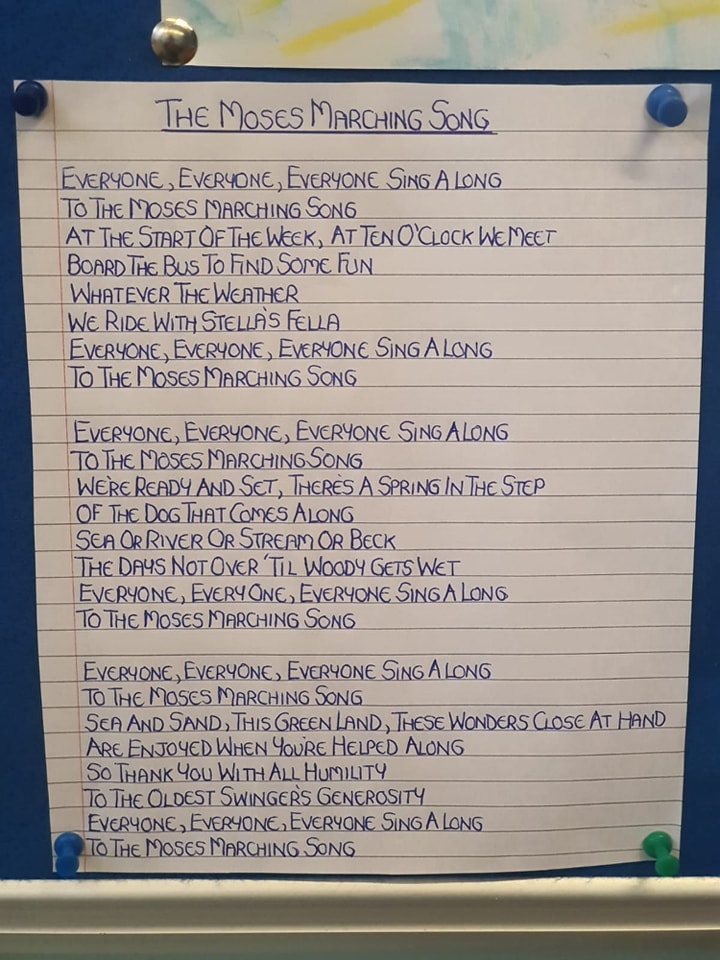 THE MOSES MARCHING SONG
EVERYONE, EVERYONE, EVERYONE SING A LONG
TO THE MOSES MARCHING SONG
AT THE START OF THE WEEK, AT TEN O'CLOCK WE MEET
BOARD THE BUS TO FIND SOME FUN
WHATEVER THE WEATHER
WE RIDE WITH STELLA'S FELLA
EVERYONE, EVERYONE, EVERYONE SING A LONG
TO THE MOSES MARCHING SONG
EVERYONE, EVERYONE, EVERYONE SING A LONG
TO THE MOSES MARCHING SONG
WE'RE READY AND SET, THERE'S A SPRING IN THE STEP
OF THE DOG THAT COMES ALONG
SEA OR RIVER OR STREAM OR BECK
THE DAYS NOT OVER 'TIL WOODY GETS WET
EVERYONE, EVERYONE, EVERYONE SING A LONG
TO THE MOSES MARCHING SONG
EVERYONE, EVERYONE, EVERYONE SING A LONG
TO THE MOSES MARCHING SONG
SEA AND SAND, THIS GREEN LAND, THESE WONDERS CLOSE AT HAND
ARE ENJOYED WHEN YOU'RE HELPED ALONG
SO THANK YOU WITH ALL HUMILITY
TO THE OLDEST SWINGER'S GENEROSITY
EVERYONE, EVERYONE, EVERYONE SING A LONG
TO THE MOSES MARCHING SONG